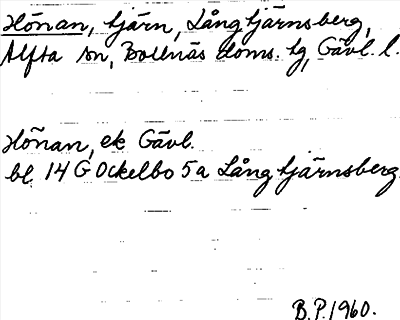 Hönan, tjärn, Långtjärnsberg,
Alfta sn, Bollnäs doms. hg, Gävl. l.
Hönan, ek Gävl.
bl 14 G Ockelbo 5a Långtjärnsberg.
B.P. 1960.